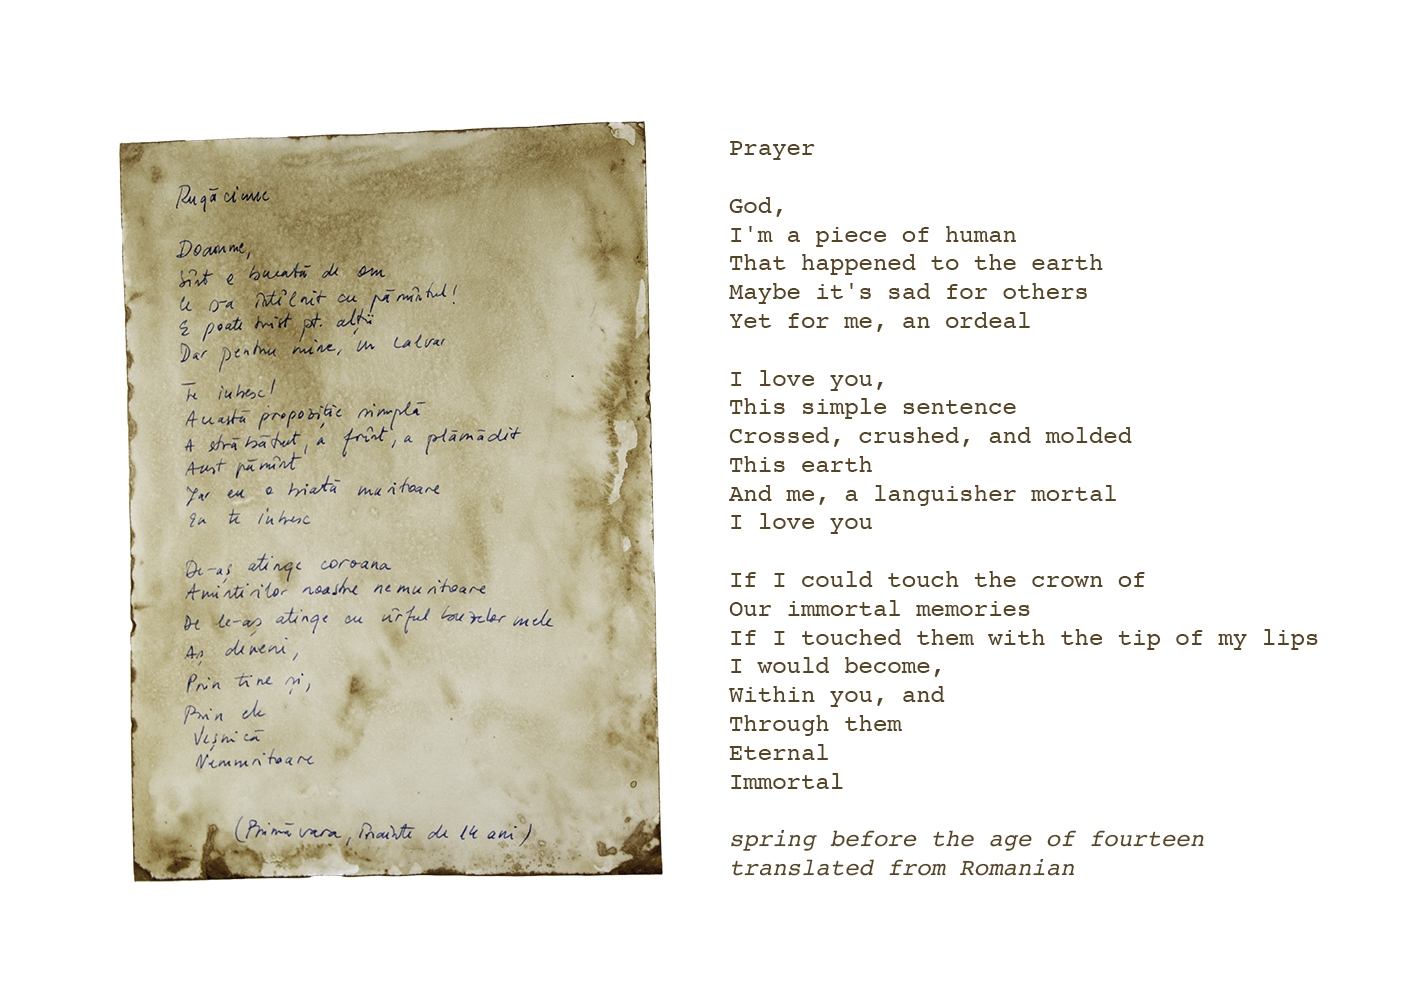 Rugăciune
Doamne,
Sînt o bucată de om
Ce s-a întîlnit cu pămîntul!
E poate trist pt. alții
Dar pentru mine, un calvar
Te iubesc!
Această propoziție simplă
A străbătut, a frînt, a plămădit
Acest pămînt
Iar eu o biată muritoare
Eu te iubesc
De-aș atinge coroana
Amintirilor noastre nemuritoare
De le-aș atinge cu vîrful buzelor mele
Aș deveni,
Prin tine și,
Prin ele
Veșnică
Nemuritoare
(Primăvara, înainte de 14 ani)
Prayer
God,
I'm a piece of human
That happened to the earth
Maybe it's sad for others
Yet for me, an ordeal
I love you,
This simple sentence
Crossed, crushed, and molded
This earth
And me, a languisher mortal
I love you
If I could touch the crown of
Our immortal memories
If I touched them with the tip of my lips
I would become,
Within you, and
Through them
Eternal
Immortal
spring before the age of fourteen
translated from Romanian